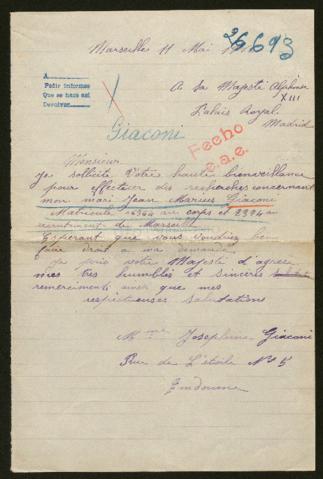 Marseille 11 Mai
26.693
A
Pedir informes
Que se hace así
Devolver
A Sa Majesté Alphonse
XIII
Palais Royal
Madrid
Giaconi
Fecho
Monsieur
Je sollicite Votre haute bienveillance
pour effectuer des recherches concernant
mon mari Jean Marius Giaconi
Matricule au corps et 2394 au
recrutement de Marseille
Espérant que vous voudrez bien
faire droit à ma demande
Je prie votre Majesté d'agréer
mes très humbles et sincères
remerciments ainsi que mes
respectueuses salutations
Mme Josephine Giaconi
Rue de L'étoile No 5
Endoume